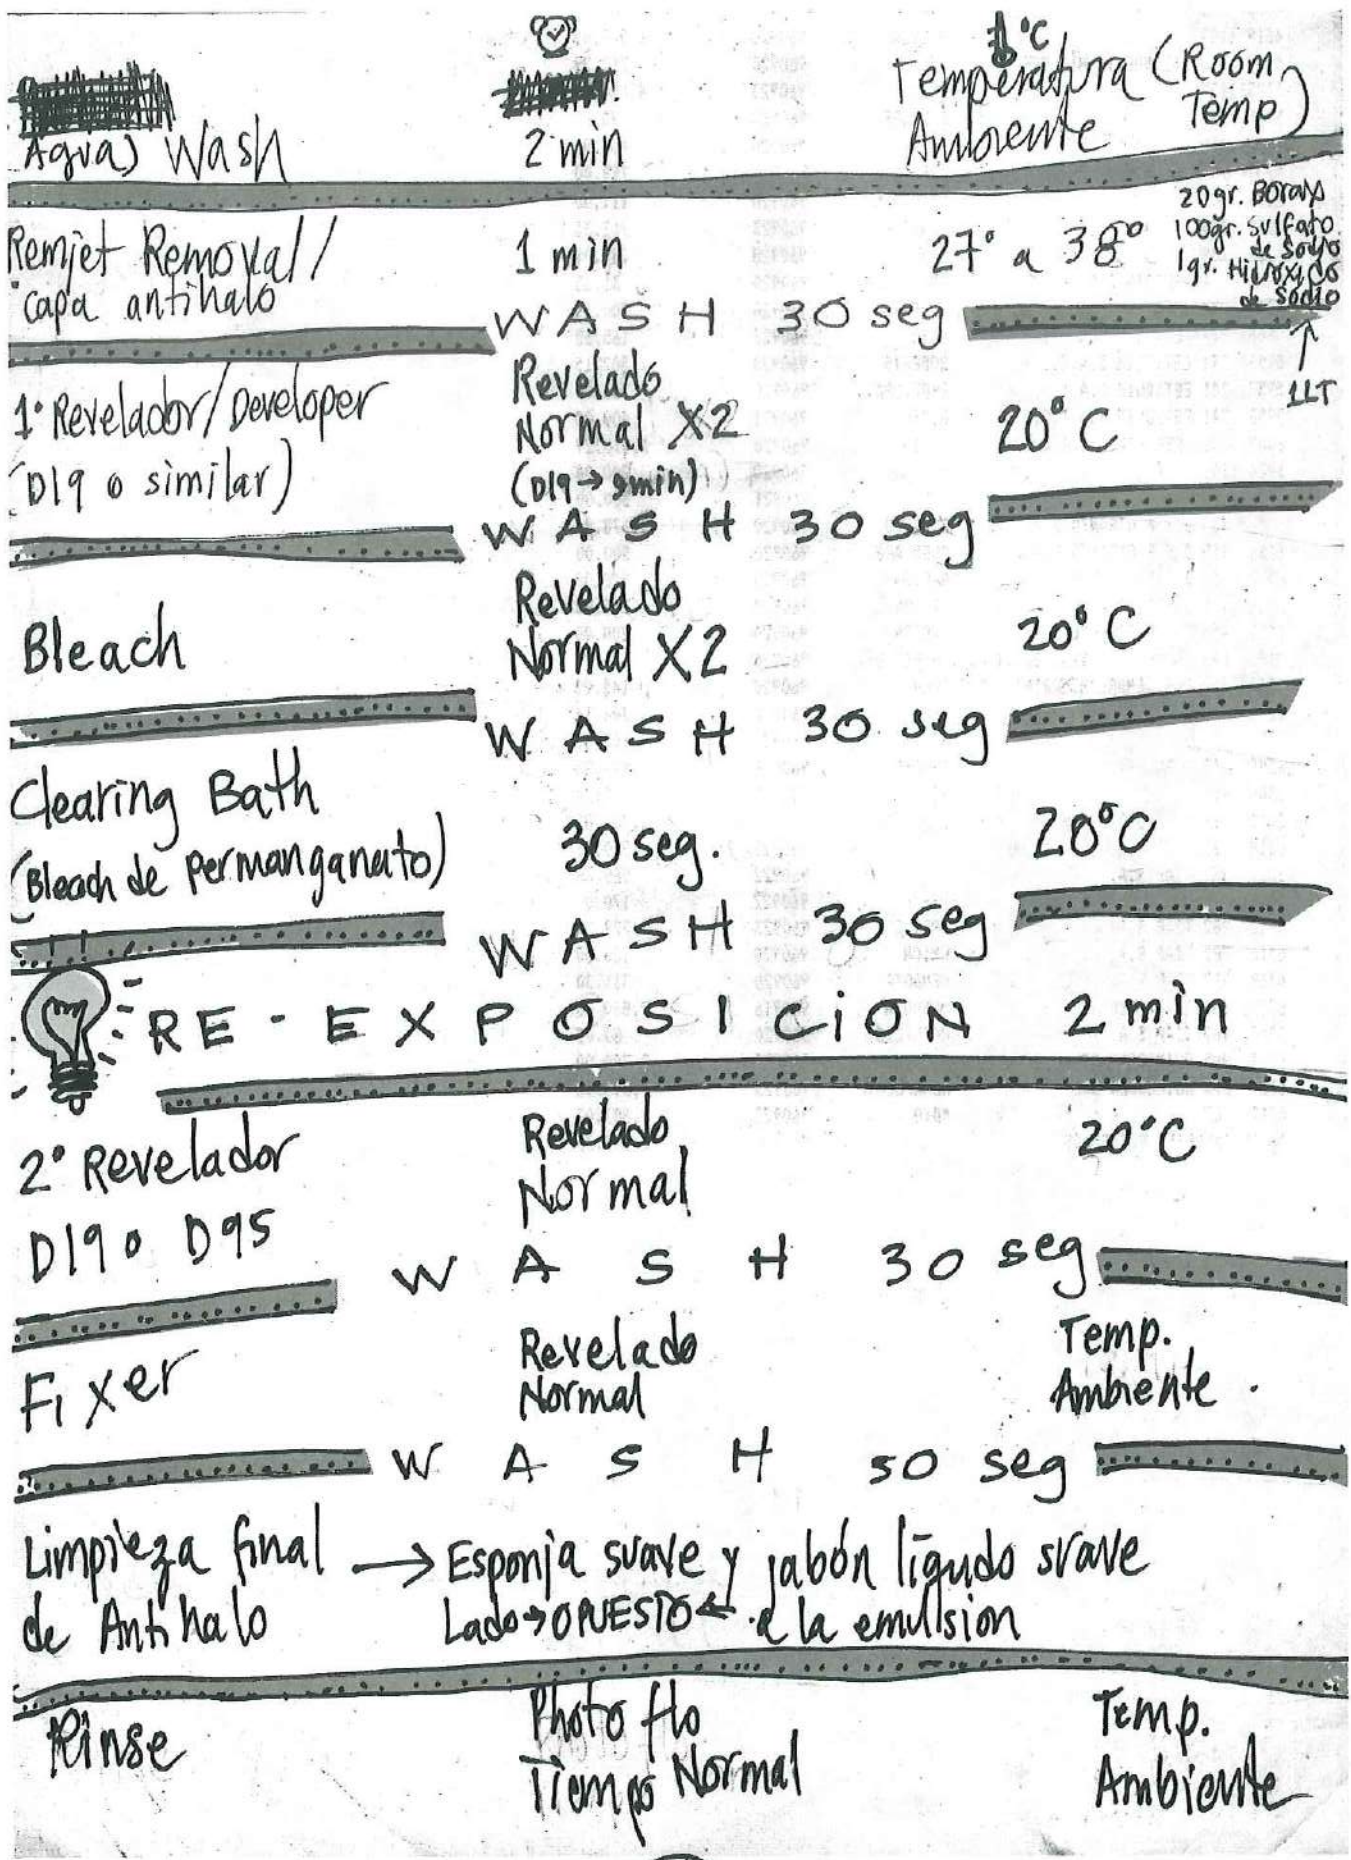 °C
Agua) Wash
2 min
Temperatura (Room Temp)
Ambiente
Remjet Removal/
capa antihalo
1 min
27° a 38°
20gr. Borax
100gr. Sulfato
de Sodio
1gr. Hidróxido
de Sodio
1LT
WASH 30 seg
1° Revelador/Developer
(D19 o similar)
Revelado
Normal X2
(D19→ 9min)
20°C
WASH 30 seg
Bleach
Revelado
Normal X2
20°C
WASH 30 seg
Clearing Bath
(Bleach de permanganato)
30 seg.
20°C
WASH 30 seg
RE-EXPOSICION 2 min
2° Revelador
D19 o D95
Revelado
Normal
20°C
WASH 30 seg
Fixer
Revelado
Normal
Temp.
Ambiente.
WASH 50 seg
Limpieza final → Esponja suave y jabón líquido suave
de Antihalo Lado→OPUESTO← a la emulsion
Rinse
Photo flo
Tiempo Normal
Temp.
Ambiente